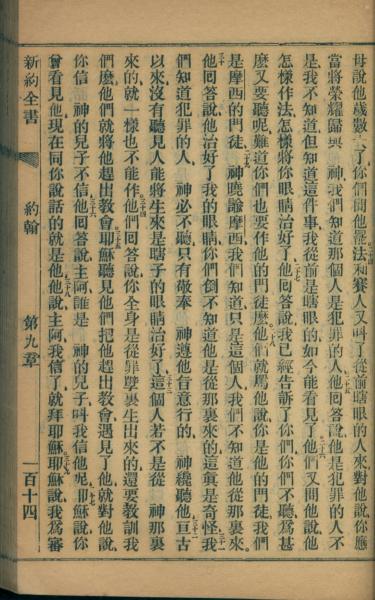 母說他歲數大了你們問他罷法利賽人又叫了從前瞎眼的人來對他說你應
當將榮耀歸與　神我們知道那個人是犯罪的人他回答說他是犯罪的人不
是我不知道但知道這件事我從前是瞎眼的如今能看見了他們又問他說他
怎樣作法怎樣將你眼睛治好了他回答說我已經告訴了你們你們不聽爲甚
麽又要聽呢難道你們也要作他的門徒麽他們就罵他說你是他的門徒我們
是摩西的門徒　神曉諭摩西我們知道只是這個人我們不知道他從那裏來
他回答說他治好了我的眼睛你們倒不知道他是從那裏來的這眞是奇怪我
們知道犯罪的人　神必不聽只有敬奉　神遵他旨意行的　神纔聽他亘古
以來沒有聽見人能將生來是瞎子的眼睛治好了這個人若不是從　神那裏
來的就一樣也不能作他們回答說你全身是從罪孽裏生出來的還要教訓我
們麽他們就將他趕出敎會耶穌聽見他們把他趕出敎會遇見了他就對他說
你信　神的兒子不信他回答說主阿誰是　神的兒子叫我信他呢耶穌說你
曾看見他現在同你說話的就是他他說主阿我信了就拜耶穌耶穌說我爲審
新約全書　約翰　第九章　一百十四